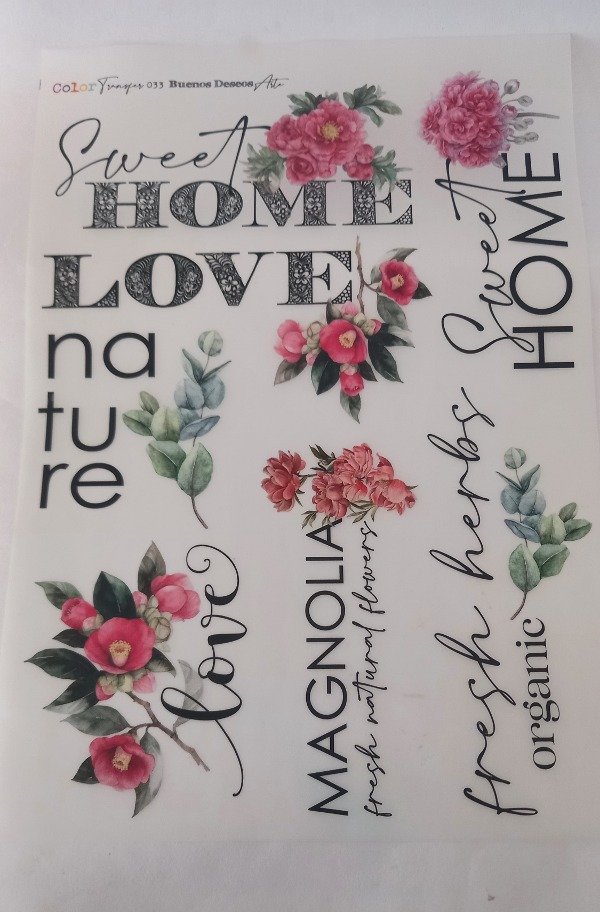 Color Transfer 033 Buenos Deseos Arte
Sweet
HOME
LOVE
na
tu
re
love
MAGNOLIA
fresh natural flowers
Sweet
HOME
fresh herbs
organic